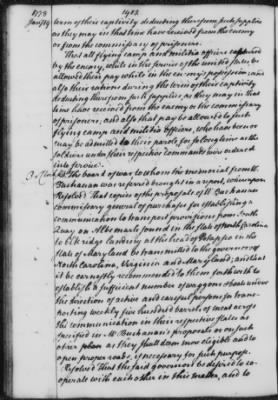 1402
1778
Jany 14
term of their captivity deducting therefrom such supplies
as they may in that time have received from the enemy
or from the commissary of prisoners.
That all flying camp and militia officers captured
by the enemy, while in the service of the united states, be
allowed their pay while in the enemy's possession and
also their rations during the term of their captivity,
deducting therefrom such supplies as they may in that
time have received from the enemy or the commissary
of prisoners, and also that pay be allowed to such
flying camp and militia officers, who have been or
may be admitted to their parole for so long time as the
soldiers under their respective commands were ordered
into service.
The board of war to whom the memorial from W.
Buchanan was referred brought in a report, whereupon
Resolved That copies of the proposals of W. Buchanan
commissary general of purchases for establishing a
communication to transport provisions from South
Quay on Albemarle sound in the state of North Carolina
to elk ridge landing at the head of Patapsco in the
state of Maryland be transmitted to the governors of
North Carolina, Virginia and Maryland; and that
it be earnestly recommended to them forthwith to
establish a sufficient number of waggons about under
the direction of active and careful persons for trans-
porting weekly five hundred barrels of meat across
the communication in their respective states as
specified in Mr Buchanan's proposals or on such
other plan as they shall deem more eligible and to
open proper roads, if necessary for such purpose.
Resolved That the said governors be desired to co-
operate with each other in this matter, and to